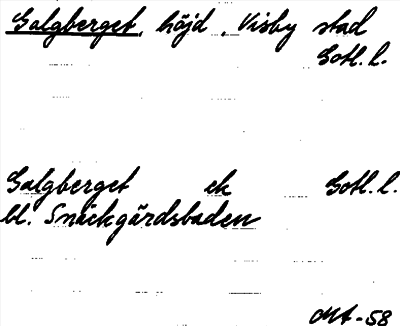 Galgberget, höjd, Visby stad
Gotl. l.
Galgberget ek Gotl. l.
bl. Snäckgärdsbaden
-58